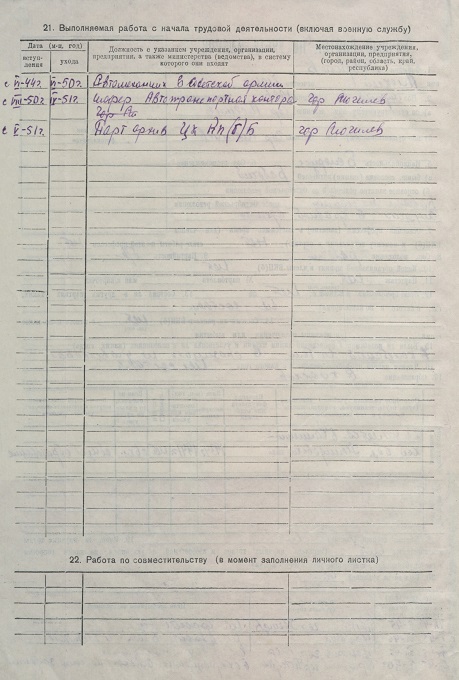 21. Выполняемая работа с начала трудовой деятельности (включая военную службу)
Дата (м-ц, год)
вступ-
ления
ухода
Должность с указанием учреждения, организации,
предприятия, а также министерства (ведомства), в систему
которого они входят
Местонахождение учреждения,
организации, предприятия,
(город, район, область, край,
республика)
с II-44г. II-50г Автомеханик в Советской армии
с VIII-50г IV-51г. шофер Автотранспортная контора гор Могилев
гор
с V-51г. Парт архив Цк Кп(б)Б гор Могилев
22. Работа по совместительству (в момент заполнения личного листка)